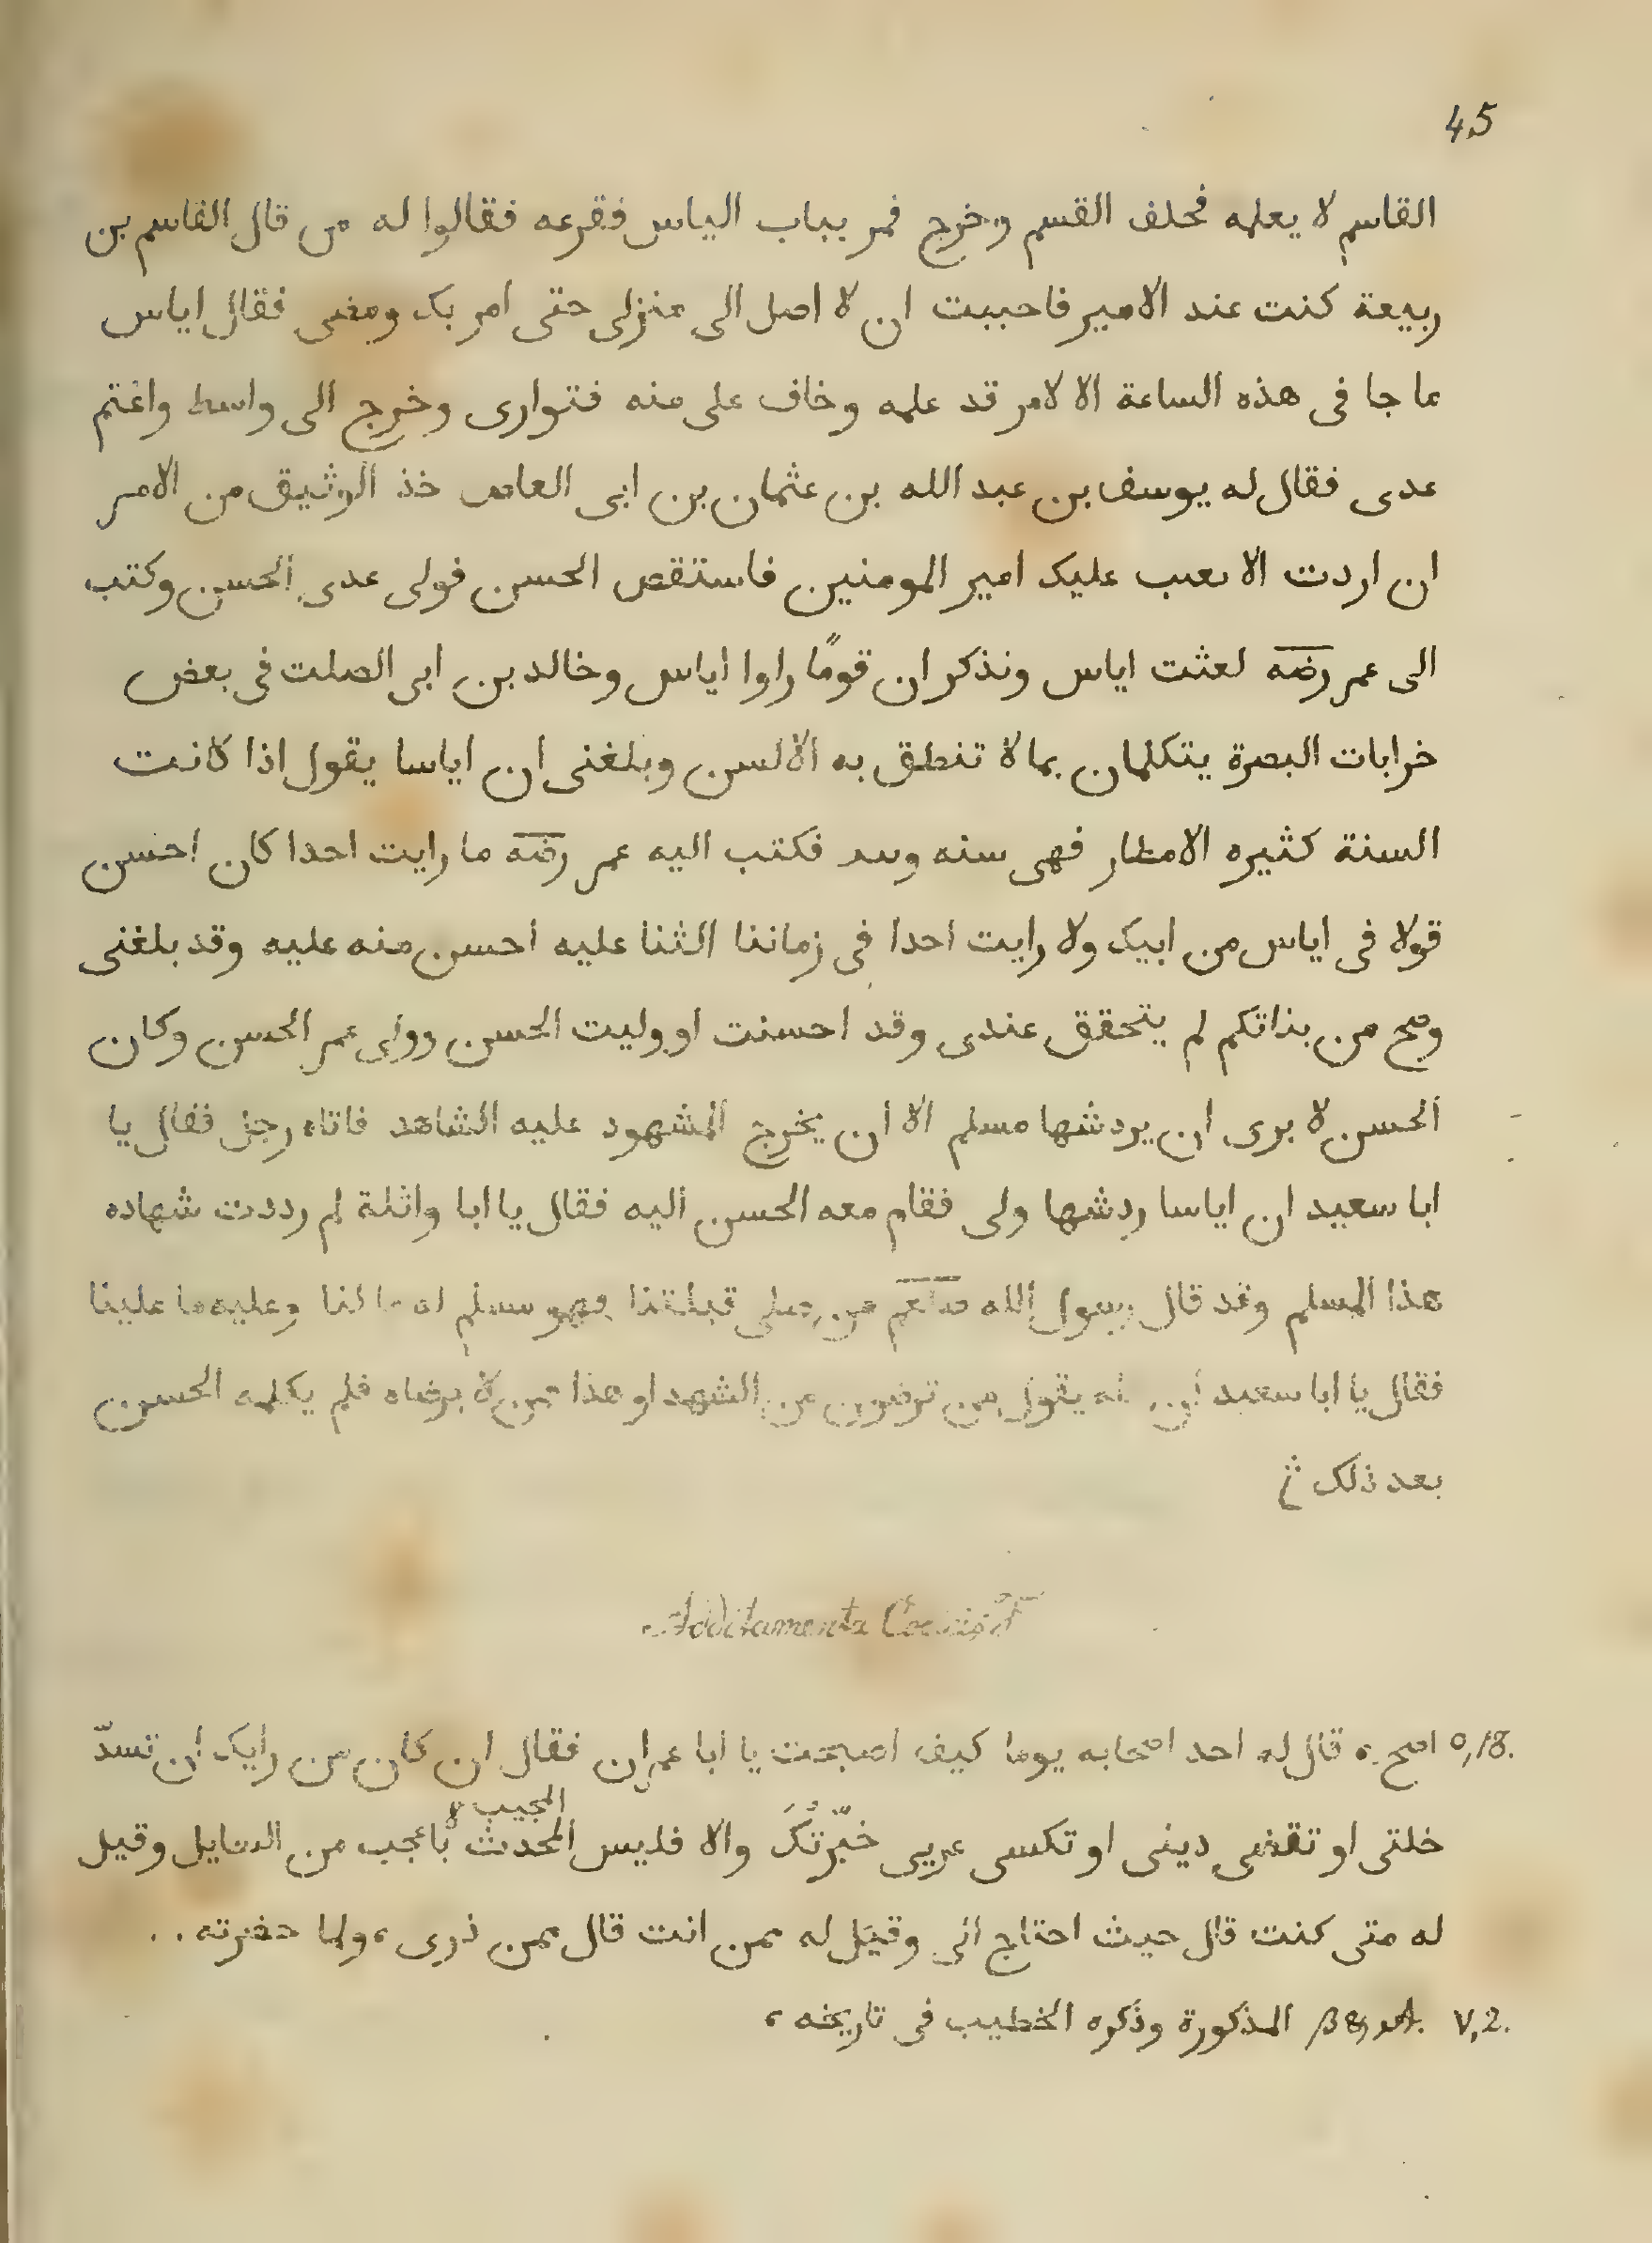 45
القاسم لا يعلمه فحلف القسم وخرج فمر بباب الياس فقرعه فقالوا له من قال القاسم بن
ربيعة كنت عند الامير فاحببت ان لا اصل الى منزلى حتى امر بك ومضى فقال اياس
ما جا فى هذه الساعة الا لامر قد علمه وخاف على منه فتوارى وخرج الى واسط واغتم
عدى فقال له يوسف بن عبد الله بن عثمان بن ابى العاص خذ الوثيق من الامر
ان اردت الا عليك امير المومنين فاستقص الحسن فولى عدى الحسن وكتب
الى عمر رضه لعثت اياس ونذكر ان قومًا راوا اياس وخالد بن ابى الصلت فى بعض
خرابات البصرة يتكلمان بما لا تنطق به الالسن وبلغنى ان اياسا يقول اذا كانت
السنة كثيره الامطار فهى سنه فكتب اليه عمر رضه ما رايت احدا كان احسن
قولا فى اياس من ابيك ولا رايت احدا فى زماننا الثنا عليه احسن منه عليه وقد بلغنى
وصح من بذاتكم لم يتحقق عندى وقد احسنت او وليت الحسن وولى عمر الحسن وكان
الحسن لا يرى ان يرد شها مسلم الا ان يخرج المشهود عليه الشاهد فاتاه رجل فقال يا
ابا سعيد ان اياسا رد شها ولى فقام معه الحسن اليه فقال يا ابا واثلة لم رددت شهاده
هذا المسلم وقد قال رسول الله صلعم من صلى قبلتنا فهو مسلم له ما لنا وعليه ما علينا
فقال يا ابا سعيد ان الله يقول من ترضون من الشهد او هذا ممن لا يرضاه فلم يكلمه الحسن
بعد ذلك
Additamenta Codicis F
٥,18. اصح، قال له احد اصحابه يوما كيف اصبحت يا ابا عمران فقال ان كان من رايك ان تسدّ
خلتى او تقضى دينى او تكسى عريى خبّرتُكَ والا فليس المحدث باعجب من السايل وقيل
المجيب
له متى كنت قال حيث احتاج الى وقيل له ممن انت قال ممن ذرى، ولما حضرته . .
٧,2. المذكورة وذكره الخطيب فى تاريخه،